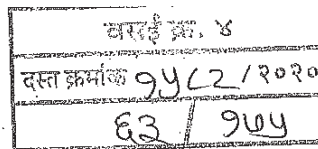 वसई क्र. ४
दस्त क्रमांक १५८२ / २०२०
६३ / १७५